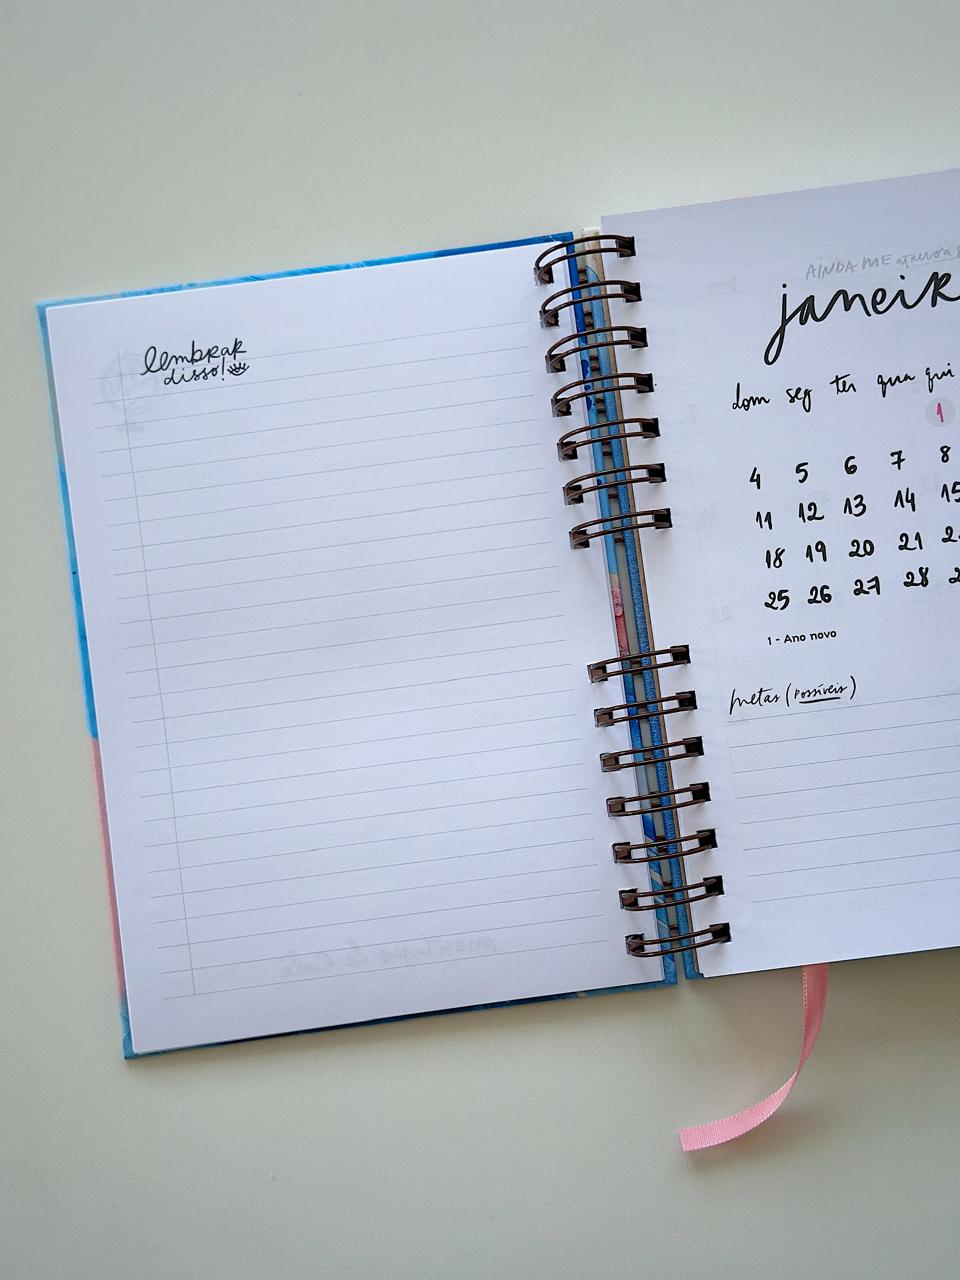 lembrar
disso!
AINDA ME atrevo a
janeir
dom seg ter qua qui
1
4 5 6 7 8
11 12 13 14 15
18 19 20 21
25 26 27 28
1 - Ano novo
metas (possíveis)